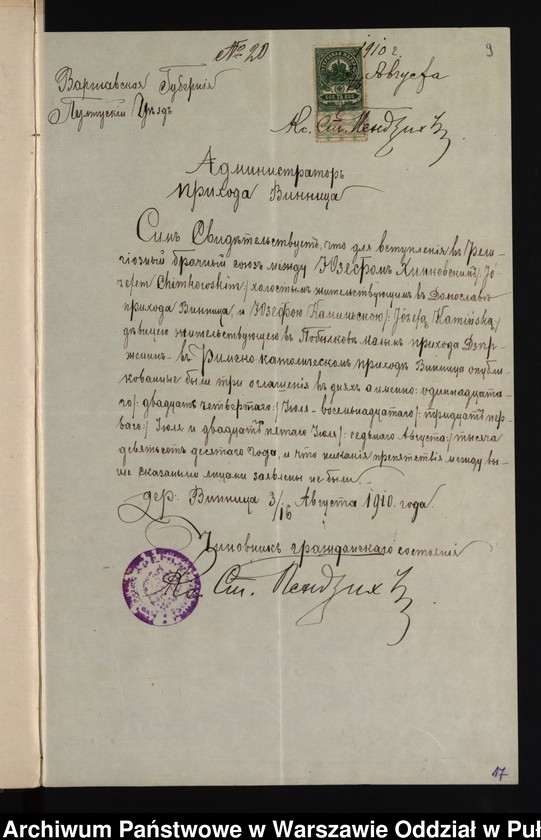 № 20
1910 г.
9
Варшавская Губернія
Августа
Пултускій Уѣздъ
Кс. Ст. Пендзихъ
Администраторъ
прихода Винница
Симъ Свидѣтельствуетъ, что для вступленія въ Рели-
гіозный брачный союзъ между Юзефомъ
холостымъ жительствующимъ въ
прихода Винница, и Юзефою Каминьскою /: Józefą Kamińską
дѣвицею жительствующею въ Побылковѣ маломъ прихода Дзер-
женинъ - въ Римско-католическомъ приходѣ Винница опубли-
кованные были три оглашенія въ дняхъ а именно: одиннадцата-
го /: двадцать четвертаго :/ Іюля - восемнадцатаго /: тридцать пер-
ваго :/ Іюля и двадцать пятаго Іюля /: седьмаго Августа :/ тысяча
девятьсотъ десятаго года, и что никакія препятствія между вы-
ше сказанными лицами заявлены не были. -
дер: Винница 3/16 Августа 1910. года
Чиновникъ гражданскаго состоянія
Кс. Ст. Пендзихъ
17
Archiwum Państwowe w Warszawie Oddział w Puł